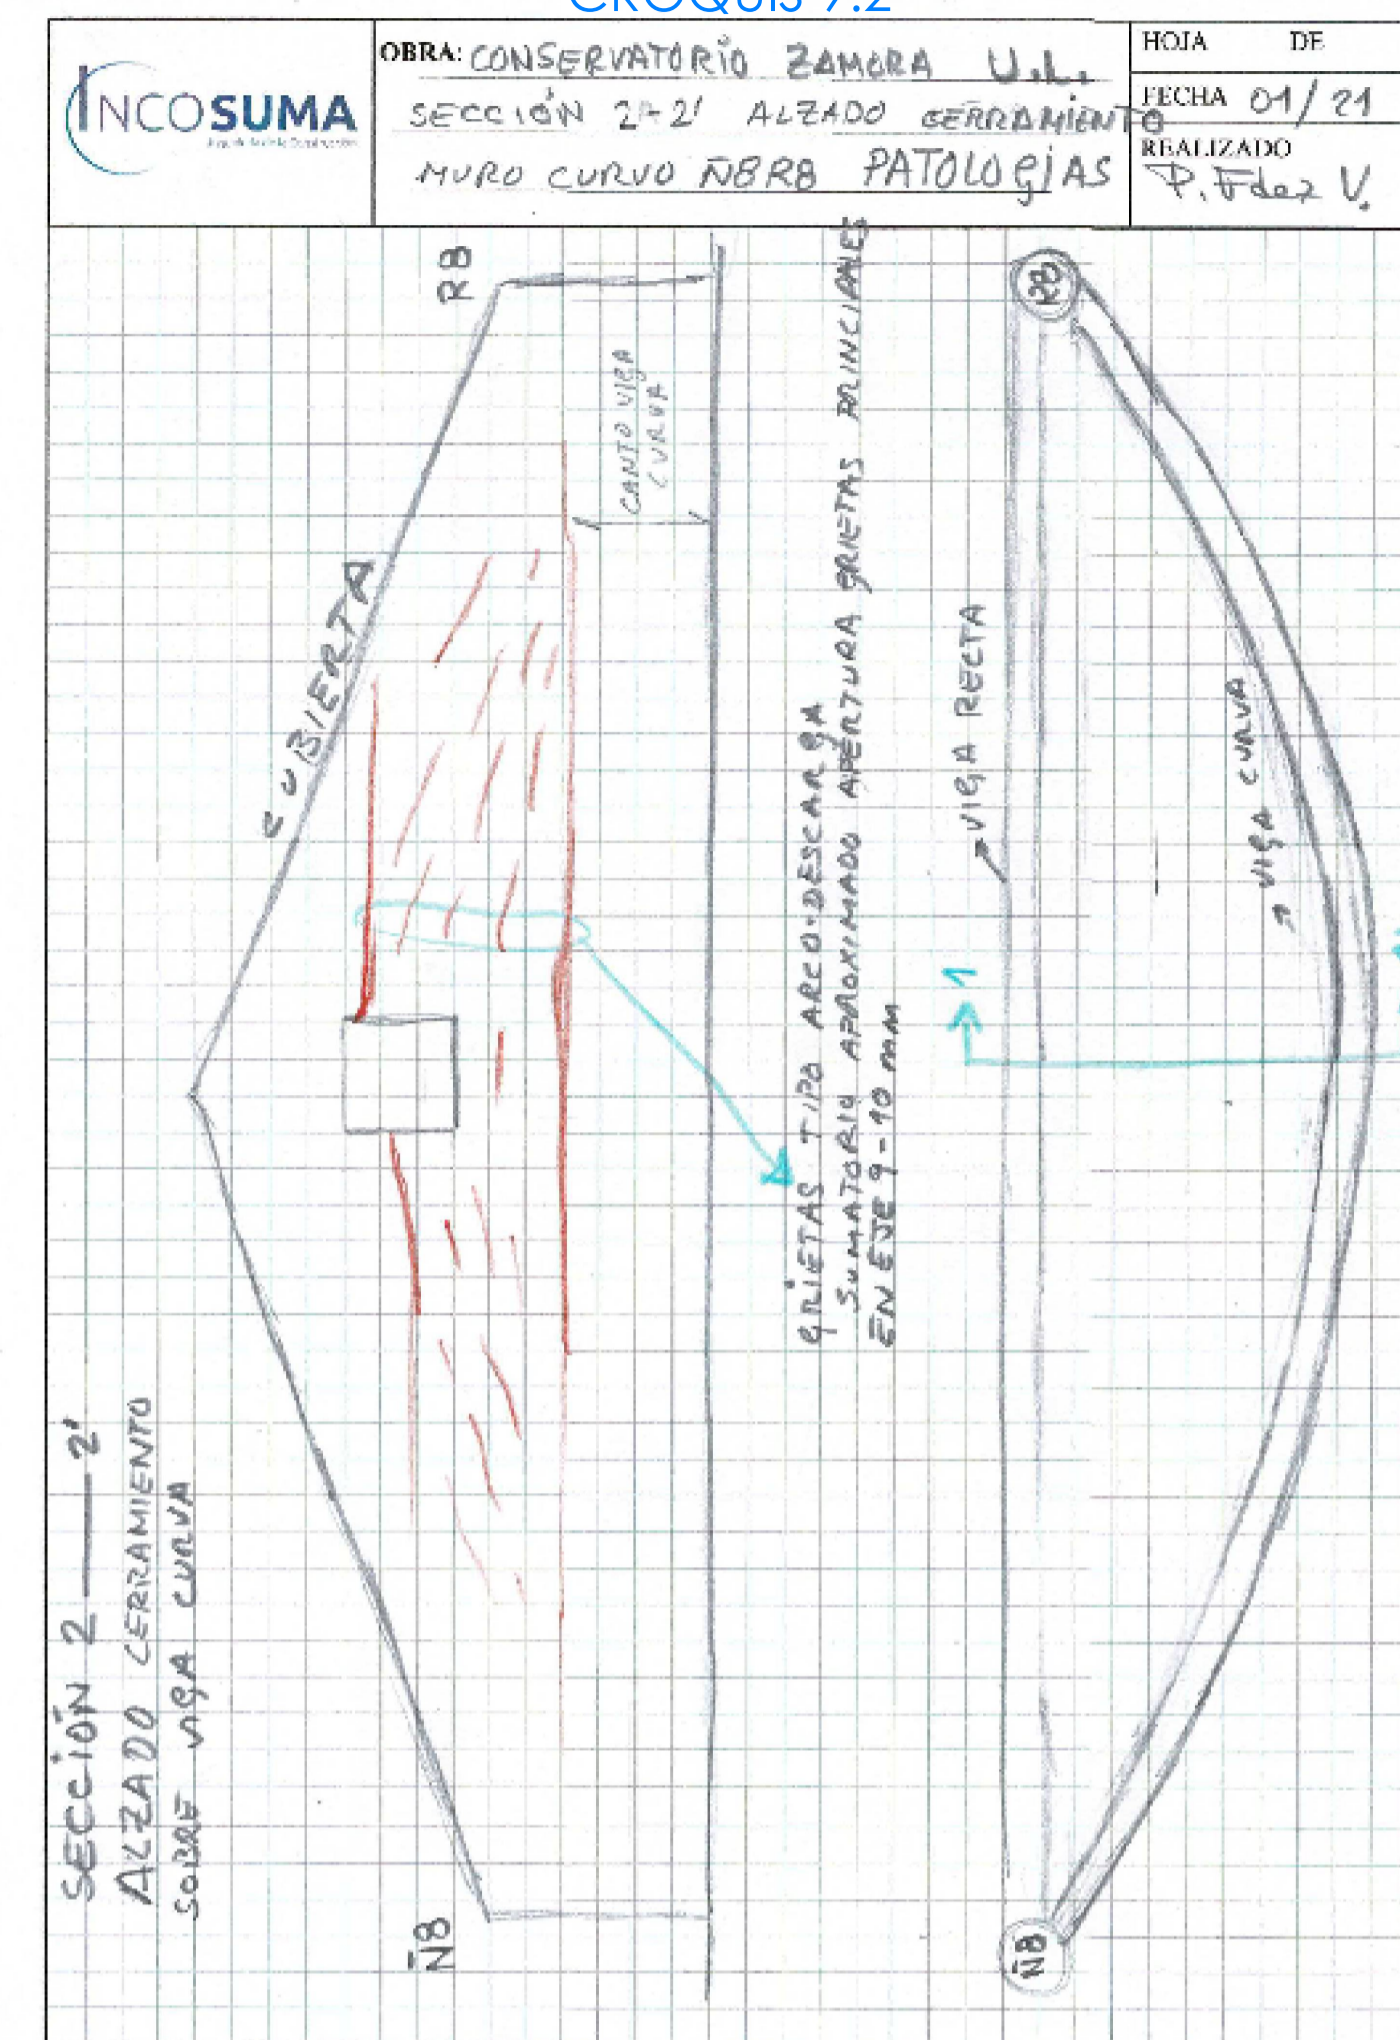 CROQUIS 7.2
INCOSUMA
OBRA: CONSERVATORIO ZAMORA U.L.
SECCIÓN 2-2' ALZADO CERRAMIENTO
MURO CURVO Ñ8R8 PATOLOGÍAS
HOJA DE
FECHA 01/21
REALIZADO
P. Fdez V.
SECCIÓN 2 — 2'
ALZADO CERRAMIENTO
SOBRE VIGA CURVA
CUBIERTA
R8
Ñ8
CANTO VIGA
CURVA
GRIETAS TIPO ARCO-DESCARGA
SUMATORIO APROXIMADO APERTURA GRIETAS PRINCIALES
EN EJE 9-10 mm
VIGA RECTA
1
VIGA CURVA
R8
Ñ8